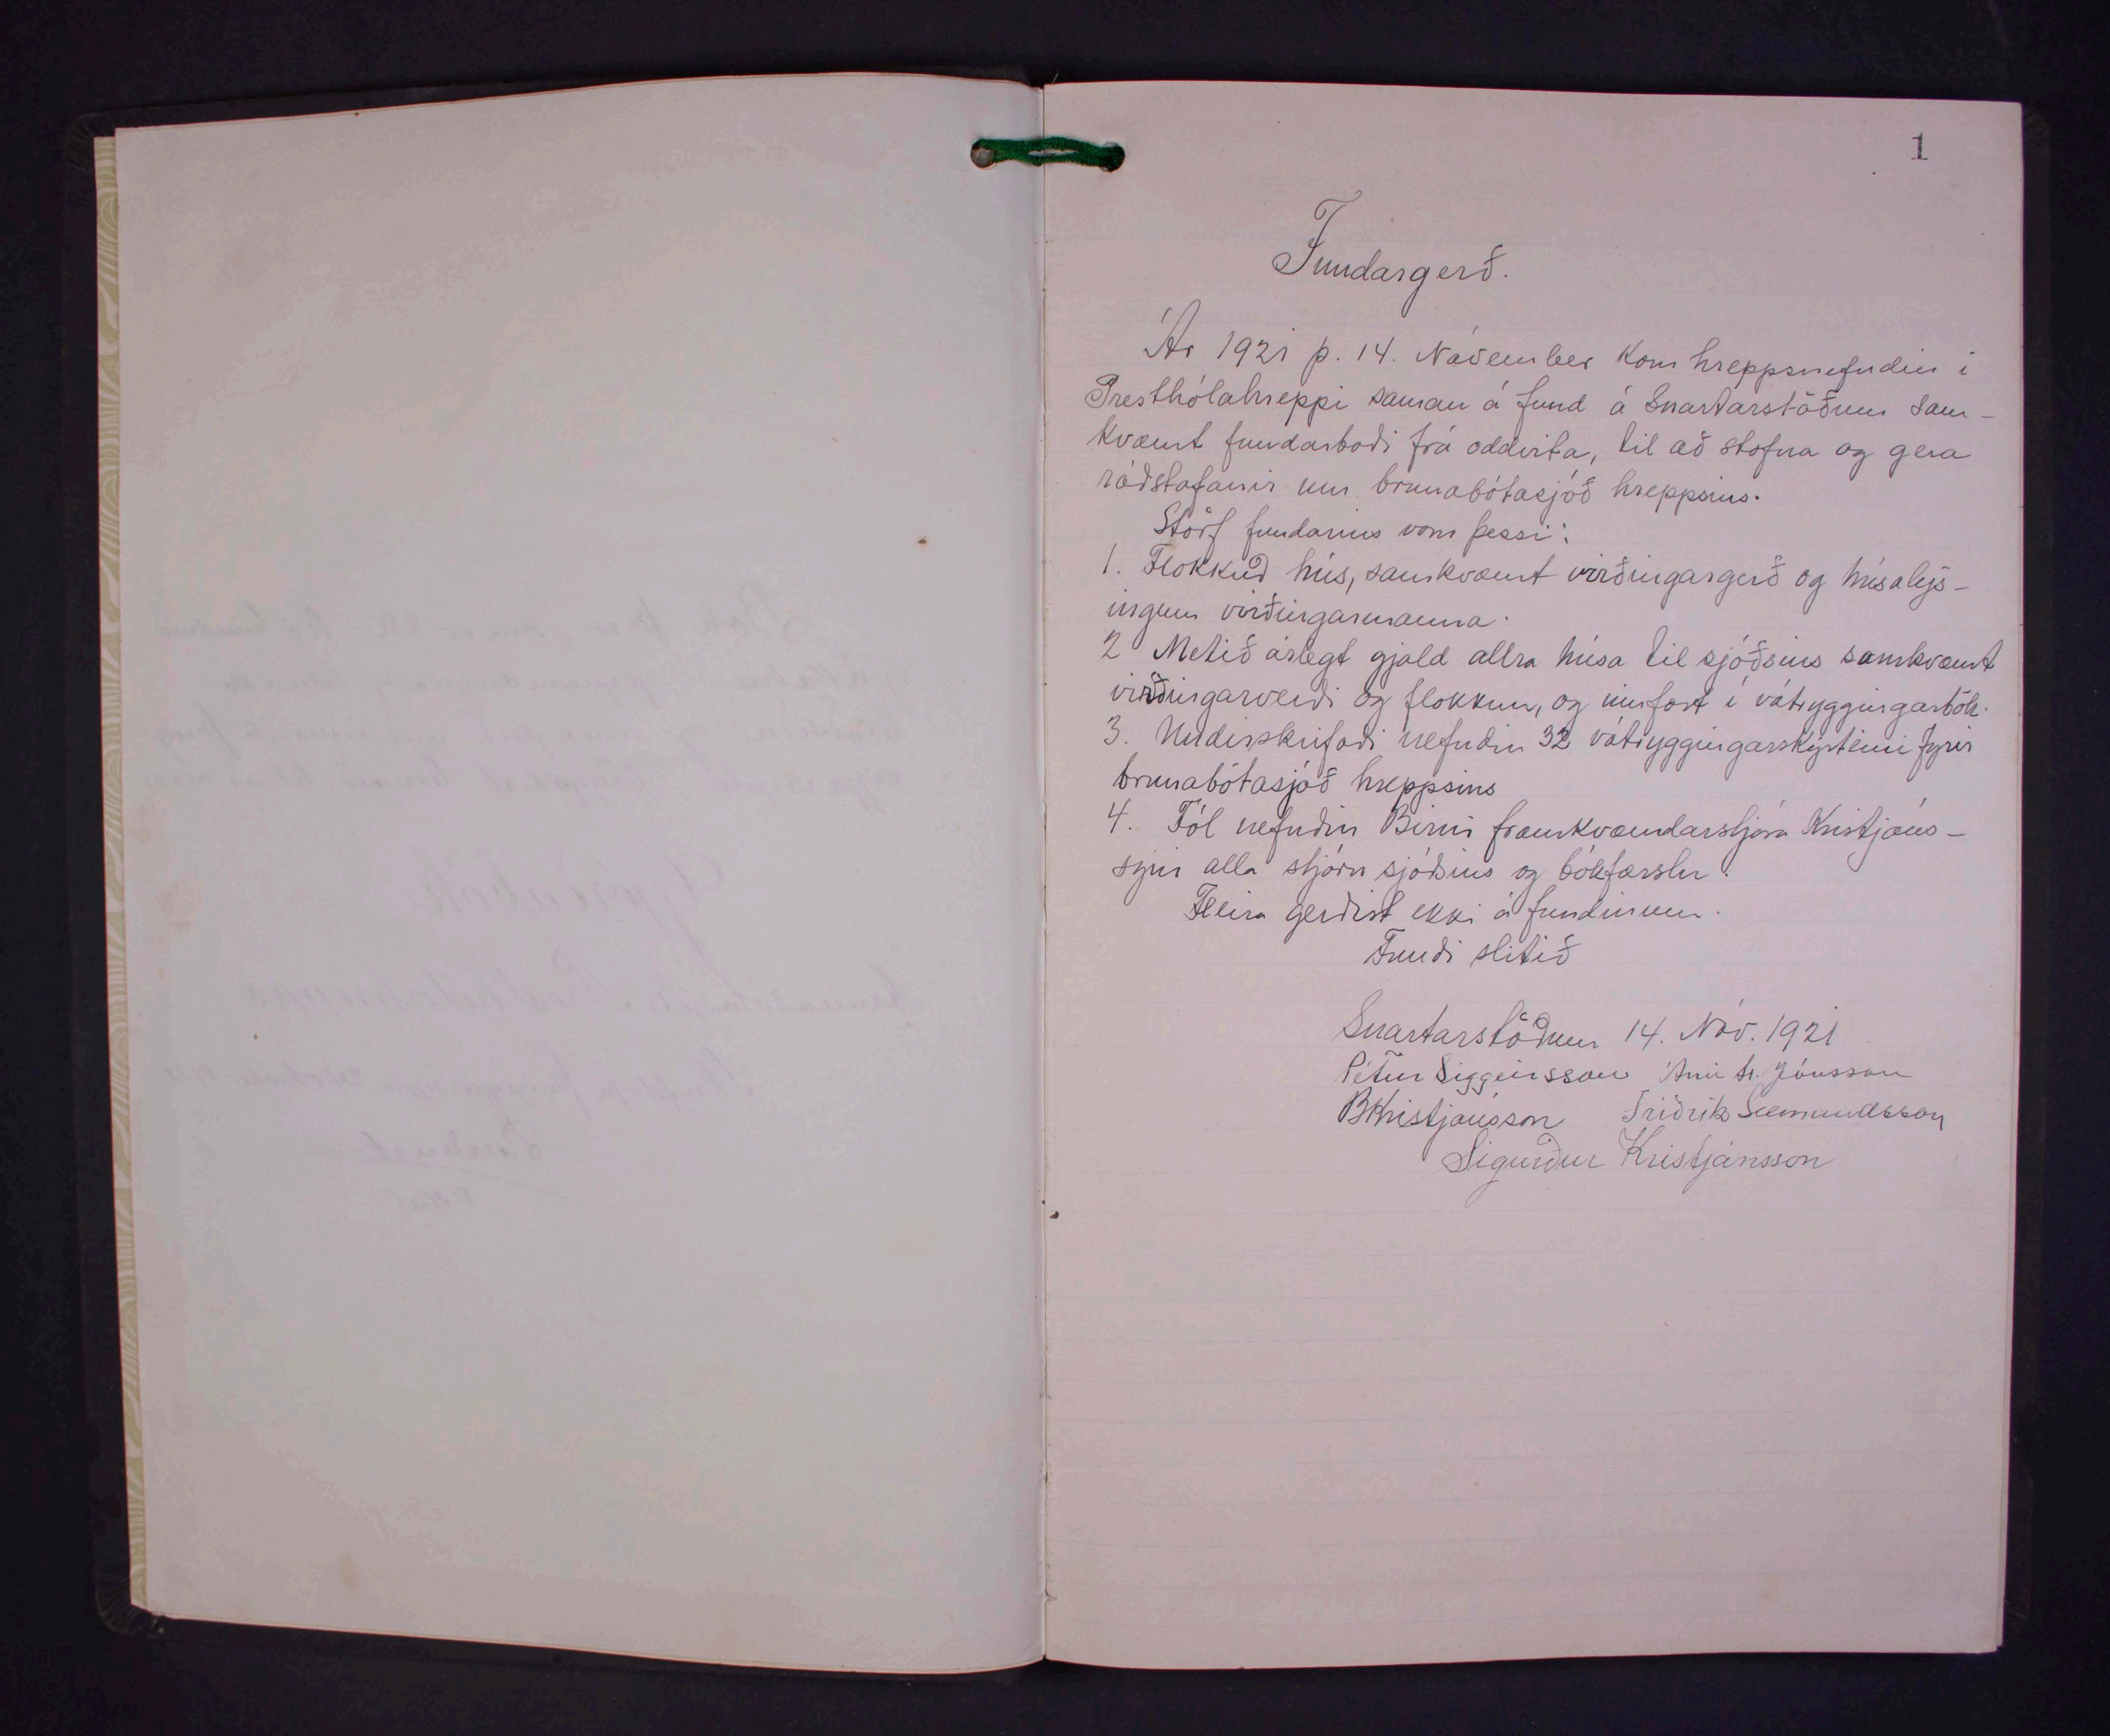 1
Fundargerð.
Ár 1921 þ. 14. Nóvember kom hreppsnefndin í
Presthólahreppi saman á fund á Snartarstöðum sam-
kvæmt fundarboði frá oddvita, til að stofna og gera
ráðstafanir um brunabótasjóð hreppsins.
Störf fundarins voru þessi:
1. Flokkuð hús, samkvæmt virðingargerð og húsalýs-
ingum virðingarmanna.
2 Metið árlegt gjald allra húsa til sjóðsins samkvæmt
virðingarverði og flokkun, og innfært í vátryggingarbók.
3. Undirskrifaði nefndin 32 vátryggingarskýrteini fyrir
brunabótasjóð hreppsins
4. Fól nefndin Birni framkvæmdarstjóra Kristjáns-
syni alla stjórn sjóðsins og bókfærslu.
Fleira gerðist ekki á fundinum.
Fundi slitið
Snartarstöðum 14. Nóv. 1921
Pétur Siggeirsson Árni Jónsson
BKristjánsson Friðrik Sæmundsson
Sigurður Kristjánsson